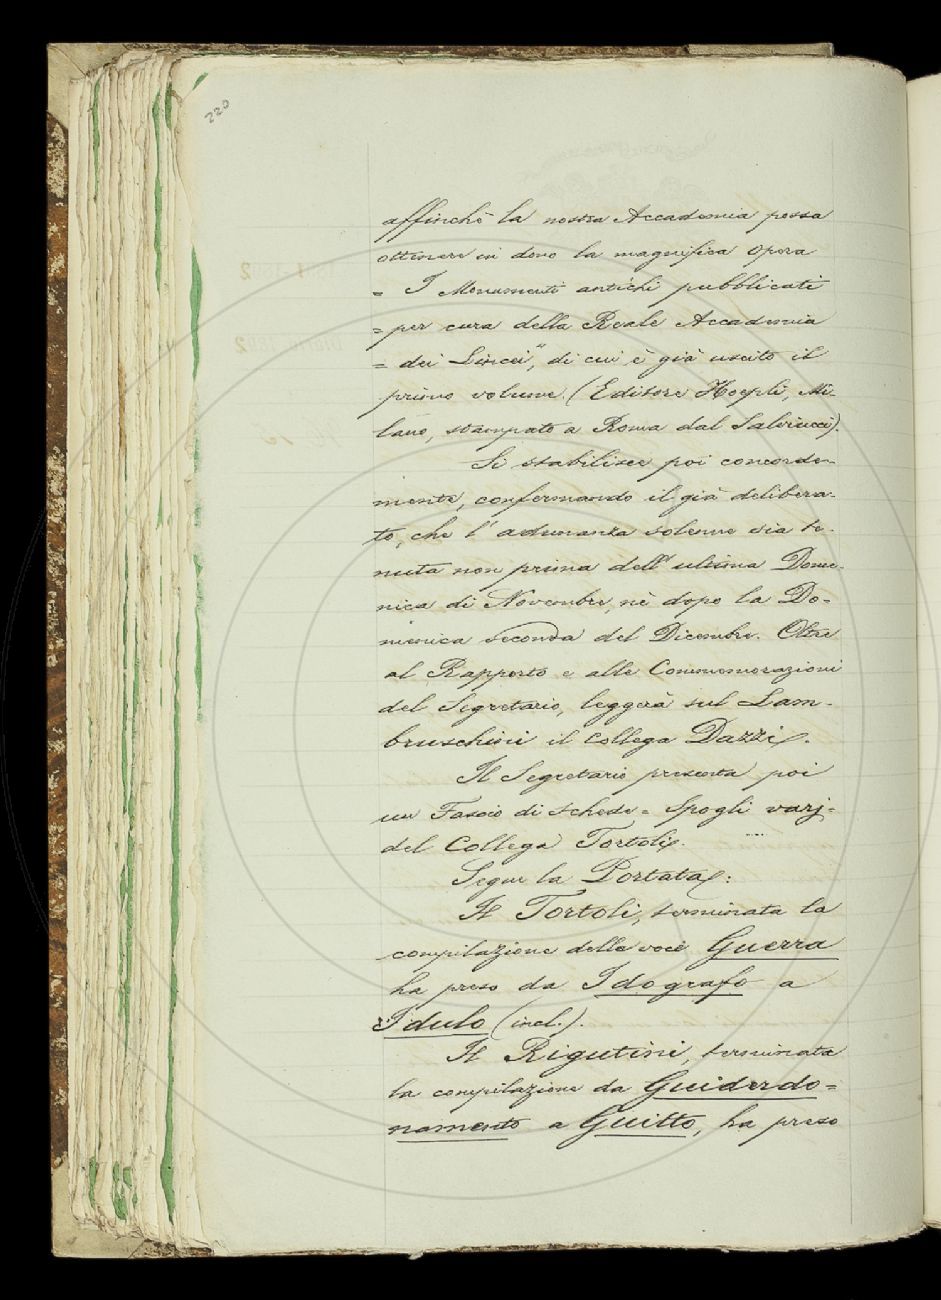 220
affinchè la nostra Accademia possa
ottenere in dono la magnifica opera
= I Monumenti antichi pubblicati
= per cura della Reale Accademia
= dei Lincei", di cui è già uscito il
primo volume (Editore Hoepli, Mi-
lano, stampato a Roma dal Salviucci).
Si stabilisce poi concorde-
mente, confermando il già delibera-
to, che l'adunanza solenne sia te-
nuta non prima dell'ultima Dome-
nica di Novembre, nè dopo la Do-
menica seconda del Dicembre. Oltre
al Rapporto e alle Commemorazioni
del Segretario, leggerà sul Lam-
bruschini il Collega Dazzi.
Il Segretario presenta poi
un Fascio di schede = Spogli varj =
del Collega Tortoli.
Segue la Portata:
Il Tortoli, terminata la
compilazione della voce Guerra
ha preso da Idografo a
Idulo (incl.).
Il Rigutini, terminata
la compilazione da Guiderdo=
namento a Guitto, ha preso